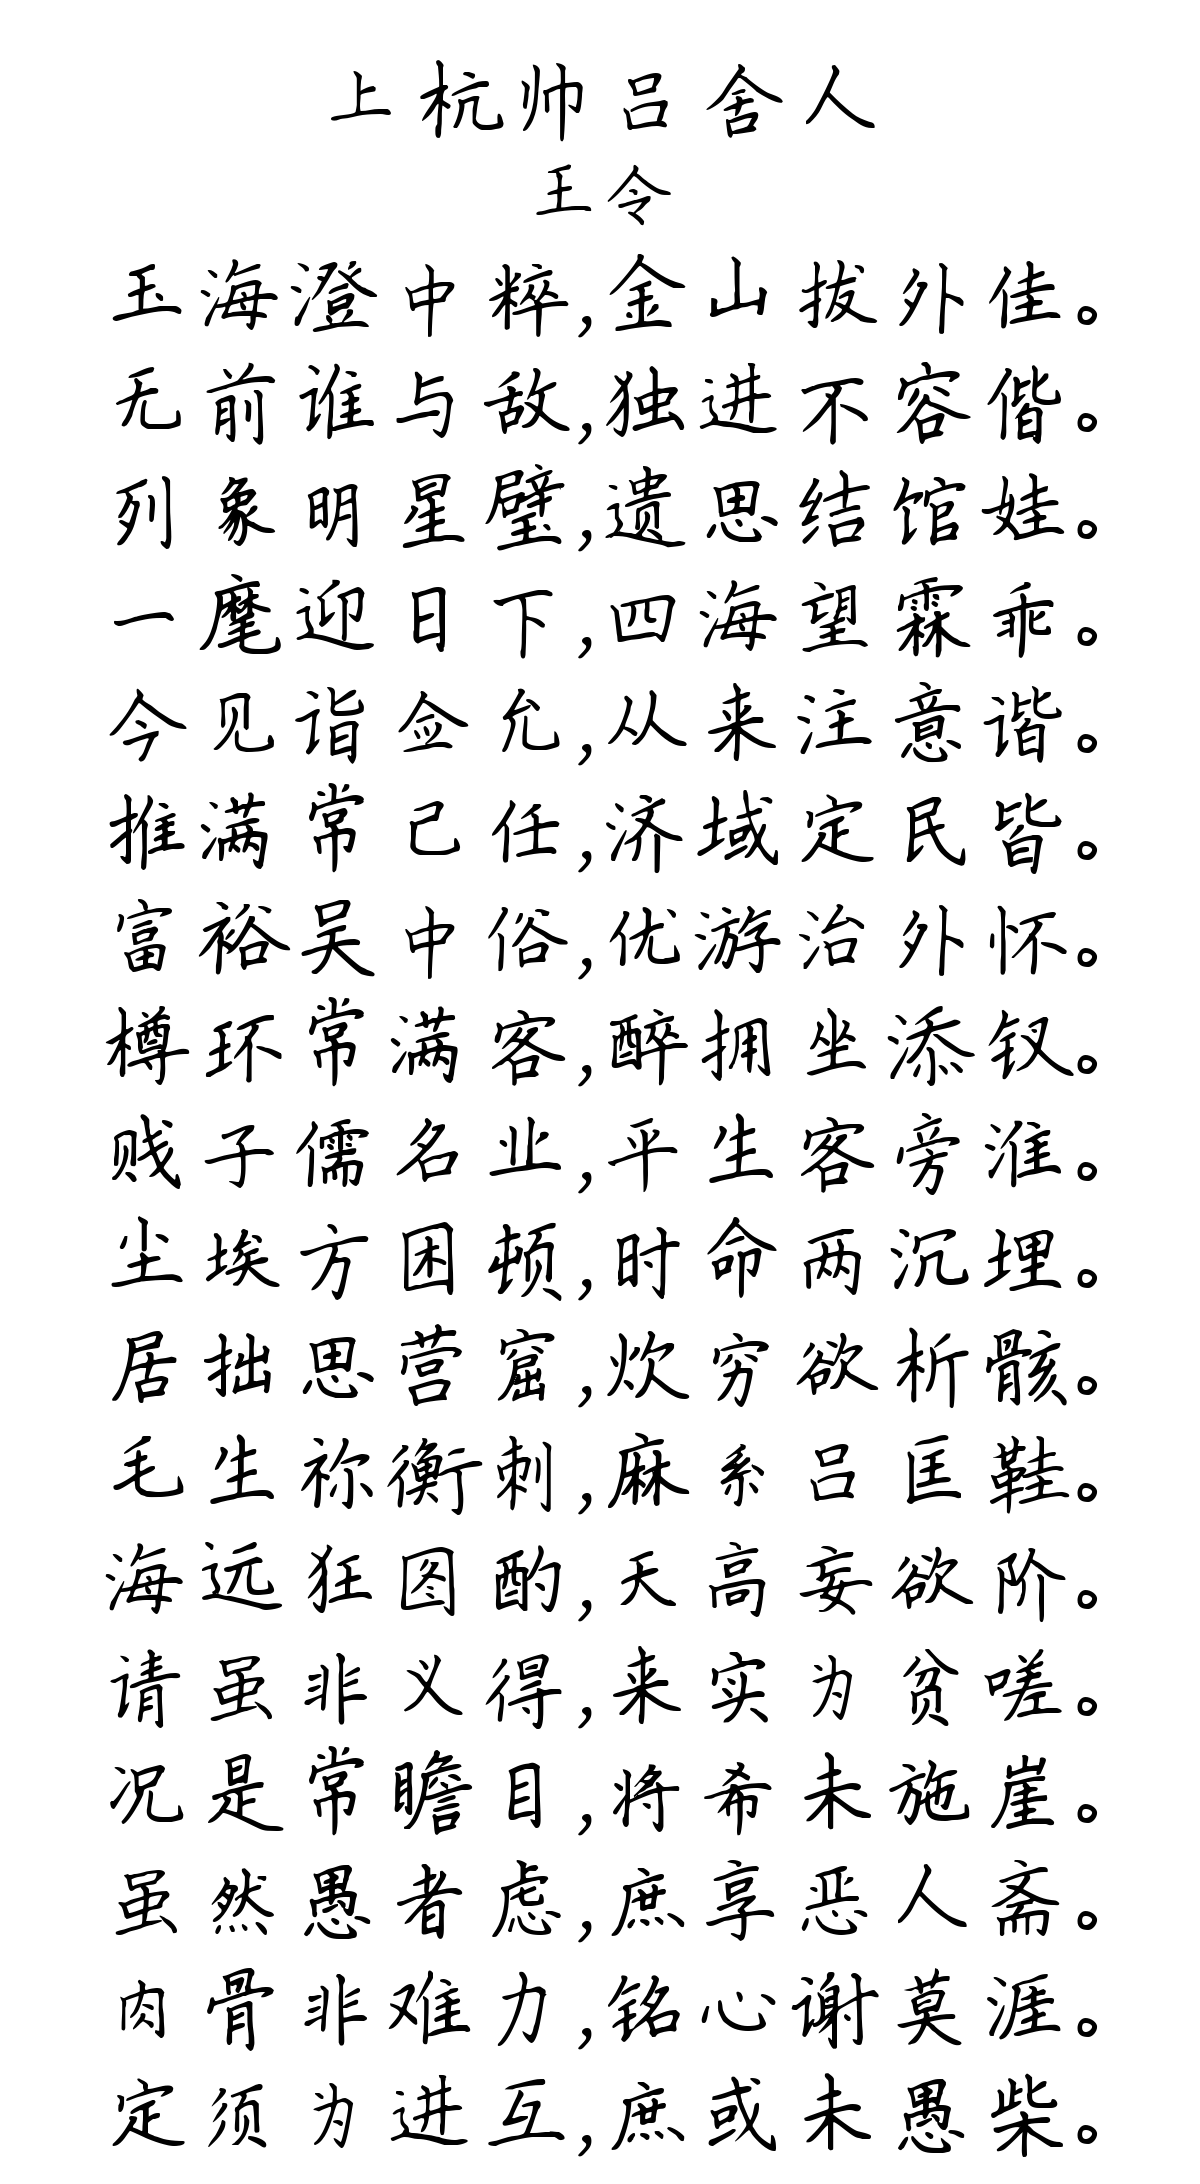 上杭帅吕舍人
王令
玉海澄中粹,金山拔外佳。
无前谁与敌,独进不容偕。
列象明星壁,遗思结馆娃。
一麾迎日下,四海望霖乖。
今见诣佥允,从来注意谐。
推满常己任,济域定民皆。
富裕吴中俗,优游治外怀。
樽环常满客,醉拥坐添钗。
贱子儒名业,平生客旁淮。
尘埃方困顿,时命两沉埋。
居拙思营窟,炊穷欲析骸。
毛生祢衡刺,麻系吕匡鞋。
海远狂图酌,天高妄欲阶。
请虽非义得,来实为贫嗟。
况是常瞻目,将希未施崖。
虽然愚者虑,庶享恶人斋。
肉骨非难力,铭心谢莫涯。
定须为进互,庶或未愚柴。